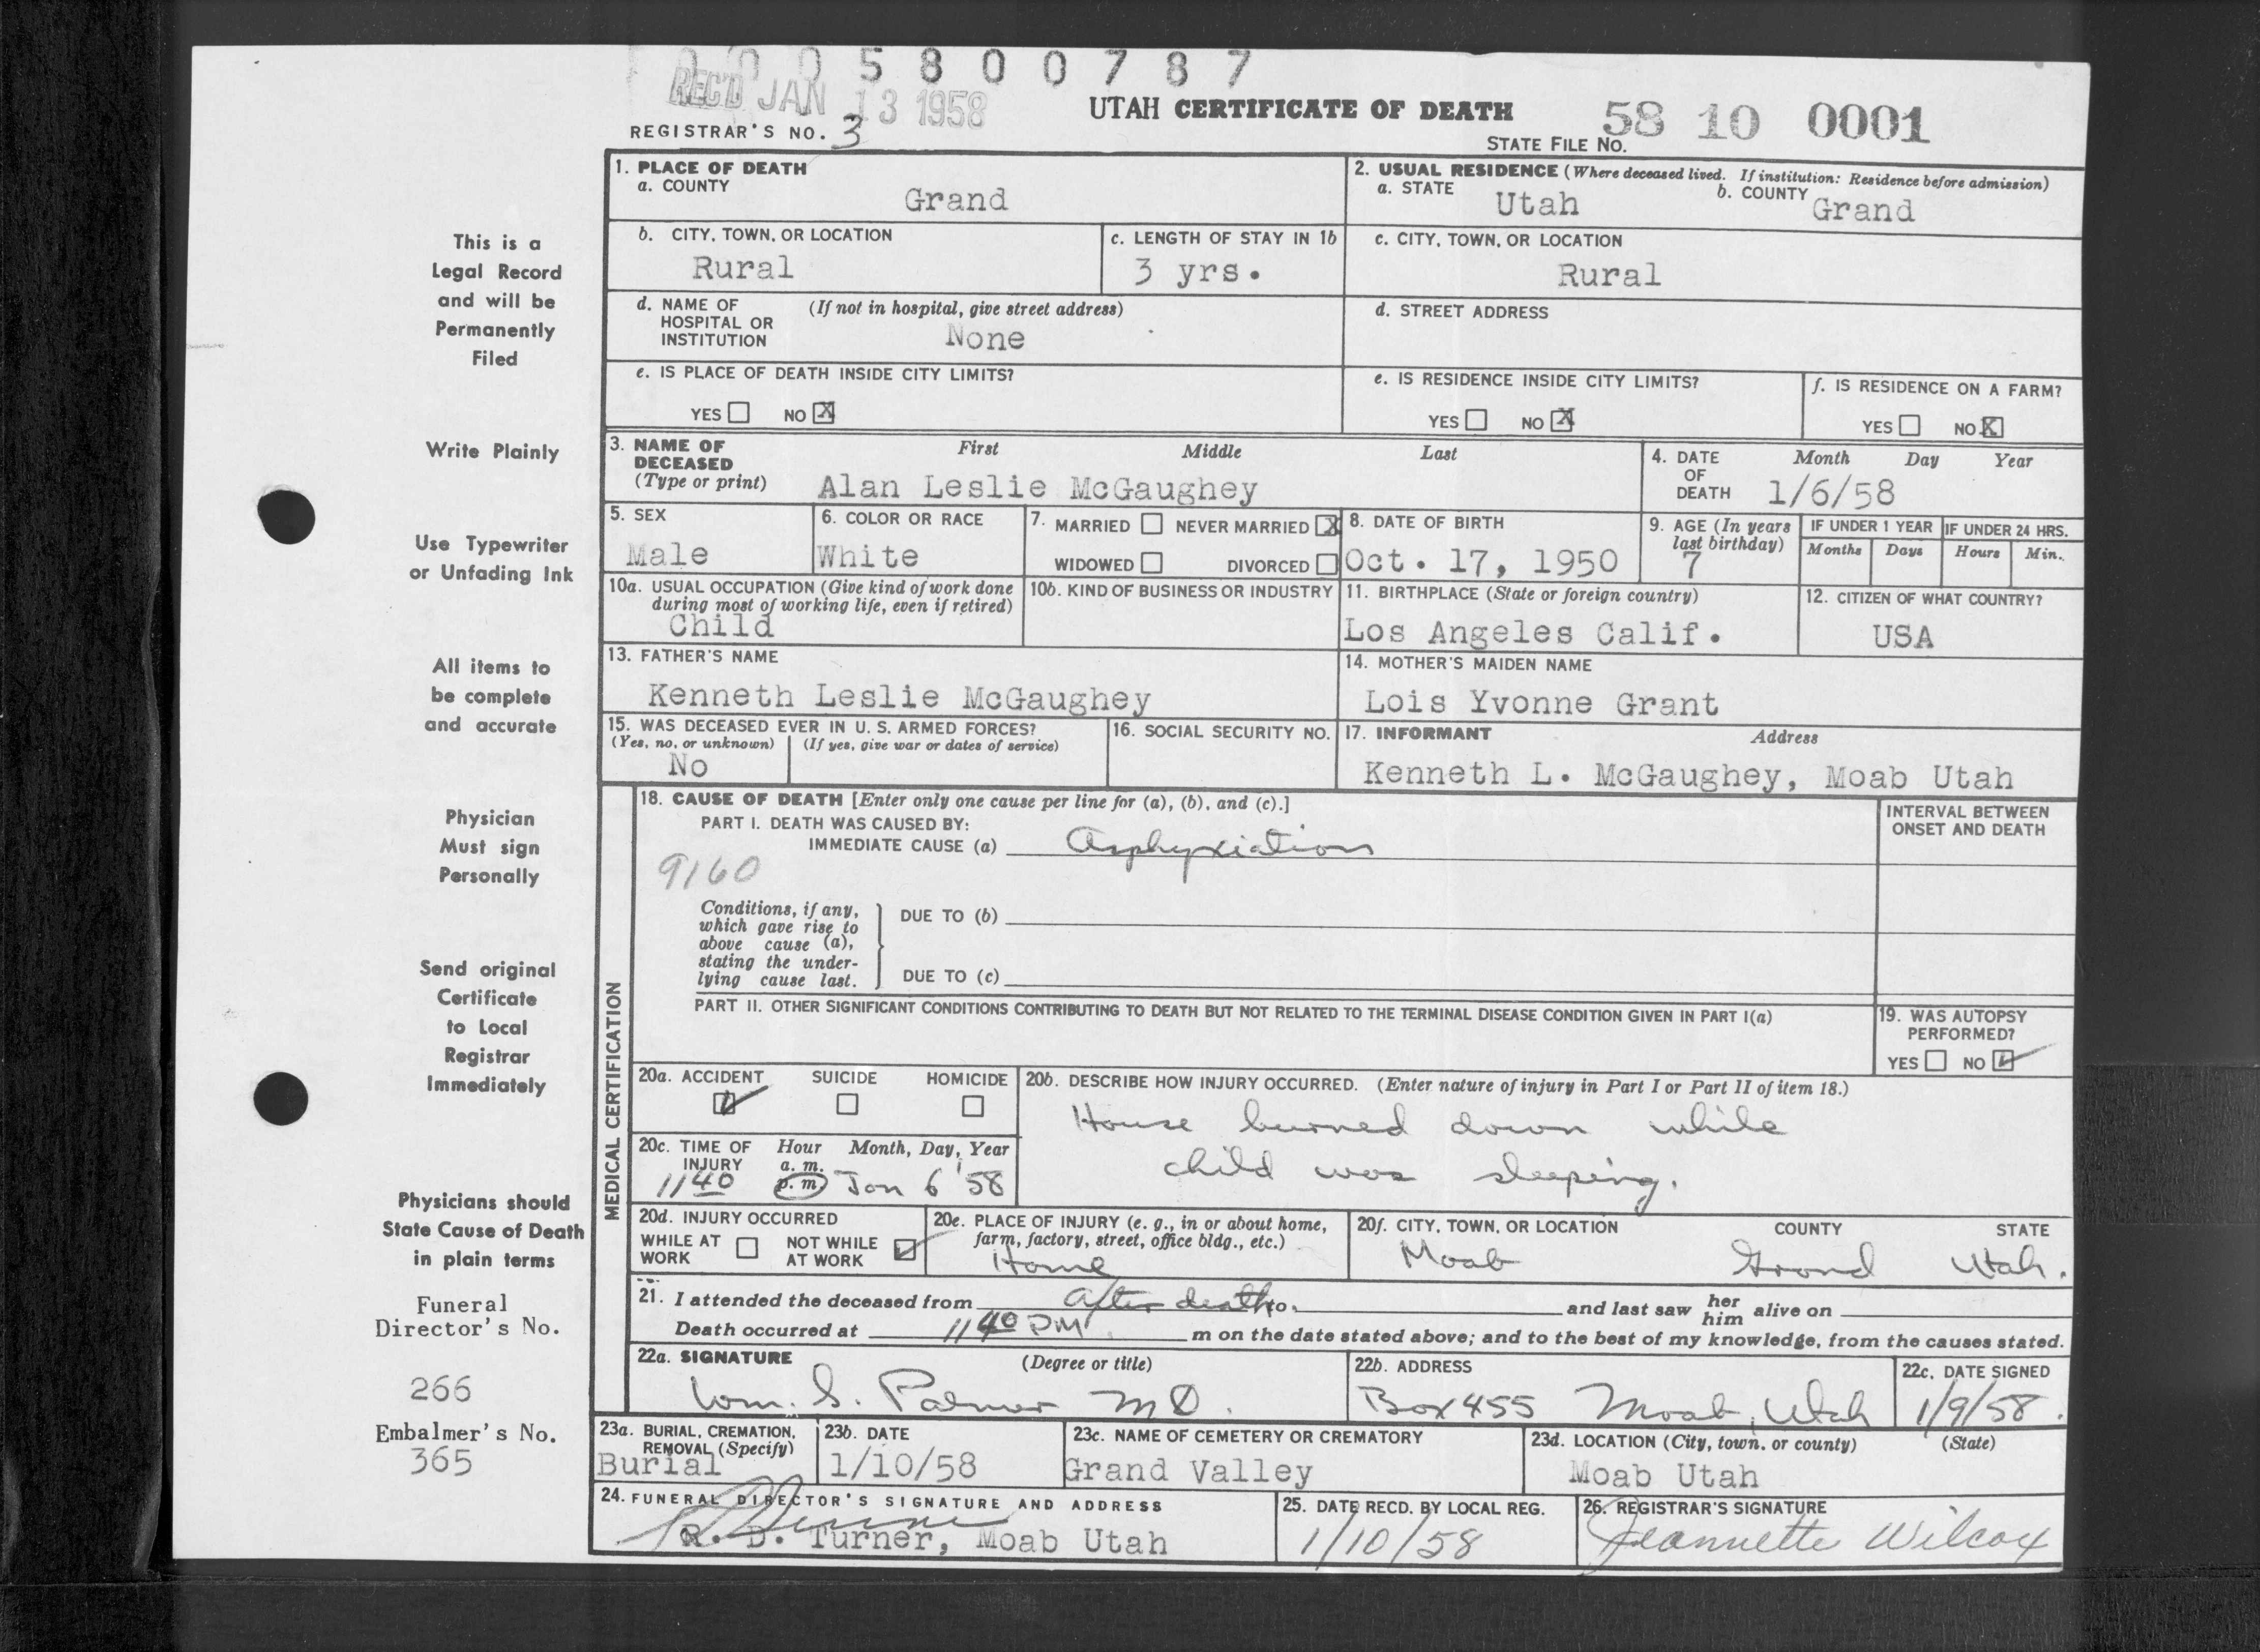 5 8 0 0 7 8 7
REC'D JAN 13 1958
UTAH CERTIFICATE OF DEATH
58 10 0001
REGISTRAR'S NO. 3
STATE FILE No.
1. PLACE OF DEATH
a. COUNTY
Grand
2. USUAL RESIDENCE (Where deceased lived. If institution: Residence before admission)
a. STATE
Utah
b. COUNTY
Grand
b. CITY, TOWN, OR LOCATION
Rural
c. LENGTH OF STAY IN 1b
3 yrs.
c. CITY, TOWN, OR LOCATION
Rural
d. NAME OF HOSPITAL OR INSTITUTION
(If not in hospital, give street address)
None
d. STREET ADDRESS
e. IS PLACE OF DEATH INSIDE CITY LIMITS?
YES NO X
e. IS RESIDENCE INSIDE CITY LIMITS?
YES NO X
f. IS RESIDENCE ON A FARM?
YES NO X
3. NAME OF DECEASED
(Type or print)
First Middle Last
Alan Leslie McGaughey
4. DATE OF DEATH
Month Day Year
1/6/58
5. SEX
Male
6. COLOR OR RACE
White
7. MARRIED NEVER MARRIED X
WIDOWED DIVORCED
8. DATE OF BIRTH
Oct. 17, 1950
9. AGE (In years last birthday)
7
IF UNDER 1 YEAR
Months Days
IF UNDER 24 HRS.
Hours Min.
10a. USUAL OCCUPATION (Give kind of work done during most of working life, even if retired)
Child
10b. KIND OF BUSINESS OR INDUSTRY
11. BIRTHPLACE (State or foreign country)
Los Angeles Calif.
12. CITIZEN OF WHAT COUNTRY?
USA
13. FATHER'S NAME
Kenneth Leslie McGaughey
14. MOTHER'S MAIDEN NAME
Lois Yvonne Grant
15. WAS DECEASED EVER IN U. S. ARMED FORCES?
(Yes, no, or unknown) (If yes, give war or dates of service)
No
16. SOCIAL SECURITY NO.
17. INFORMANT Address
Kenneth L. McGaughey, Moab Utah
MEDICAL CERTIFICATION
18. CAUSE OF DEATH [Enter only one cause per line for (a), (b), and (c).]
INTERVAL BETWEEN ONSET AND DEATH
PART I. DEATH WAS CAUSED BY:
IMMEDIATE CAUSE (a) Asphyxiation
9160
Conditions, if any, which gave rise to above cause (a), stating the underlying cause last.
DUE TO (b)
DUE TO (c)
PART II. OTHER SIGNIFICANT CONDITIONS CONTRIBUTING TO DEATH BUT NOT RELATED TO THE TERMINAL DISEASE CONDITION GIVEN IN PART I(a)
19. WAS AUTOPSY PERFORMED?
YES NO ✓
20a. ACCIDENT ✓ SUICIDE HOMICIDE
20b. DESCRIBE HOW INJURY OCCURRED. (Enter nature of injury in Part I or Part II of item 18.)
House burned down while
child was sleeping.
20c. TIME OF INJURY
Hour Month, Day, Year
a. m.
1140 p. m. Jan 6 '58
20d. INJURY OCCURRED
WHILE AT WORK NOT WHILE AT WORK ✓
20e. PLACE OF INJURY (e. g., in or about home, farm, factory, street, office bldg., etc.)
Home
20f. CITY, TOWN, OR LOCATION COUNTY STATE
Moab Grand Utah.
21. I attended the deceased from After death to and last saw her him alive on
Death occurred at 1140 PM m on the date stated above; and to the best of my knowledge, from the causes stated.
22a. SIGNATURE (Degree or title)
Wm. S. Palmer MD.
22b. ADDRESS
Box 455 Moab, Utah
22c. DATE SIGNED
1/9/58.
23a. BURIAL, CREMATION, REMOVAL (Specify)
Burial
23b. DATE
1/10/58
23c. NAME OF CEMETERY OR CREMATORY
Grand Valley
23d. LOCATION (City, town, or county) (State)
Moab Utah
24. FUNERAL DIRECTOR'S SIGNATURE AND ADDRESS
R. D. Turner, Moab Utah
25. DATE RECD. BY LOCAL REG.
1/10/58
26. REGISTRAR'S SIGNATURE
Jeannette Wilcox
This is a
Legal Record
and will be
Permanently
Filed
Write Plainly
Use Typewriter
or Unfading Ink
All items to
be complete
and accurate
Physician
Must sign
Personally
Send original
Certificate
to Local
Registrar
Immediately
Physicians should
State Cause of Death
in plain terms
Funeral
Director's No.
266
Embalmer's No.
365